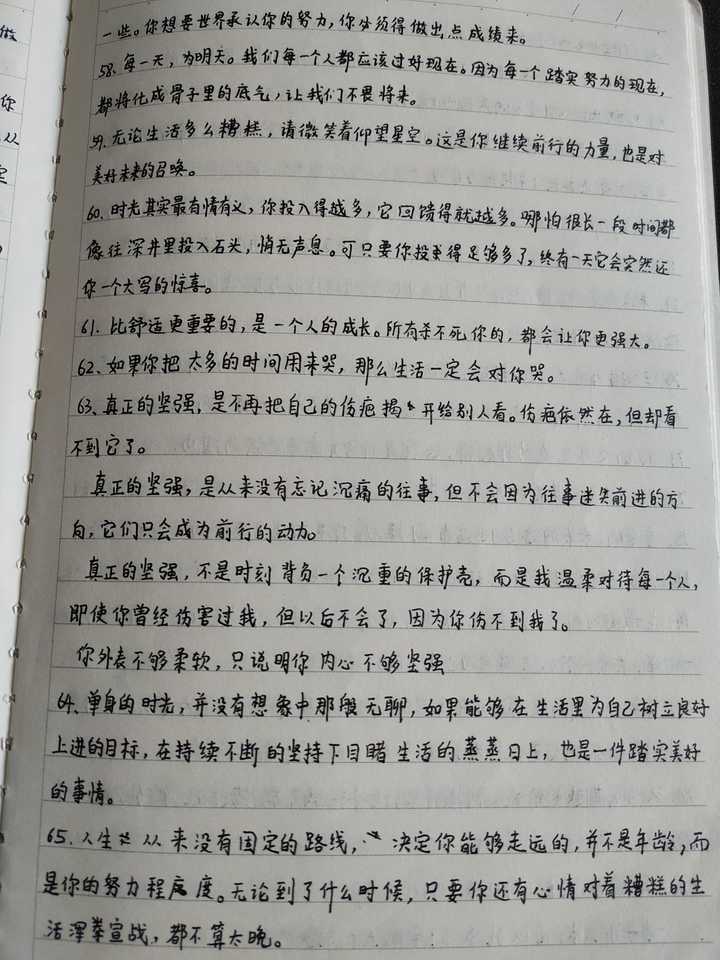 一些。你想要世界承认你的努力，你必须得做出点成绩来。
58、每一天，为明天。我们每一个人都应该过好现在。因为每一个踏实努力的现在，
都将化成骨子里的底气，让我们不畏将来。
59、无论生活多么糟糕，请微笑着仰望星空。这是你继续前行的力量，也是对
美好未来的召唤。
60、时光其实最有情有义，你投入得越多，它回馈得就越多。哪怕很长一段时间都
像往深井里投入石头，悄无声息。可只要你投得足够多了，终有一天它会突然还
你一个大写的惊喜。
61、比舒适更重要的，是一个人的成长。所有杀不死你的，都会让你更强大。
62、如果你把太多的时间用来哭，那么生活一定会对你哭。
63、真正的坚强，是不再把自己的伤疤揭开给别人看。伤疤依然在，但却看
不到它了。
真正的坚强，是从来没有忘记沉痛的往事，但不会因为往事迷失前进的方
向，它们只会成为前行的动力。
真正的坚强，不是时刻背负一个沉重的保护壳，而是我温柔对待每一个人，
即使你曾经伤害过我，但以后不会了，因为你伤不到我了。
你外表不够柔软，只说明你内心不够坚强
64、单身的时光，并没有想象中那般无聊，如果能够在生活里为自己树立良好
上进的目标，在持续不断的坚持下目睹生活的蒸蒸日上，也是一件踏实美好
的事情。
65、人生从来没有固定的路线，决定你能够走远的，并不是年龄，而
是你的努力程度。无论到了什么时候，只要你还有心情对着糟糕的生
活浑拳宣战，都不算太晚。